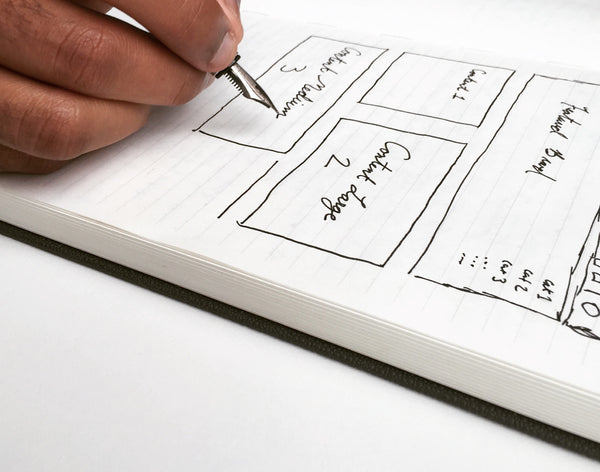 Featured
cat 1
cat 2
cat 3
Content 1
Content Large
2
Content Medium
3